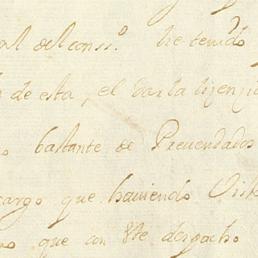 del conss.º he tenido
de esta, el dar la lizenzia
bastante de Preuendados
cargo que hauiendo
que con Ste despacho